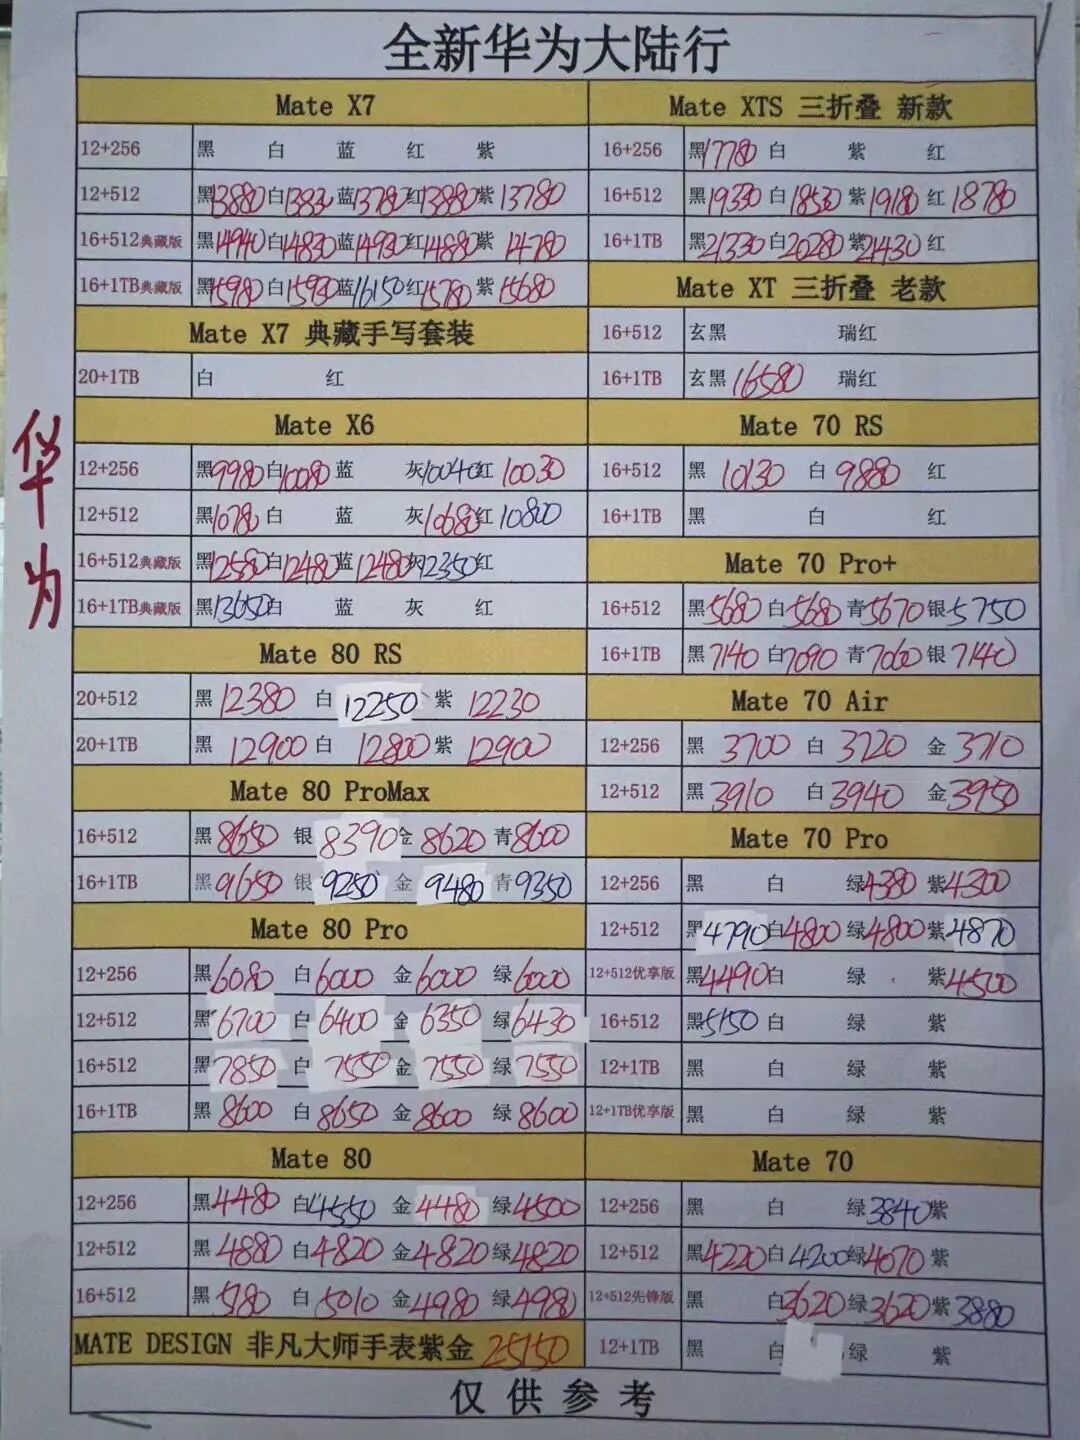 全新华为大陆行
华为
Mate X7
12+256 黑 白 蓝 红 紫
12+512 黑13880 白13830 蓝13780 红13880 紫13780
16+512典藏版 黑14940 白14830 蓝14930 红14880 紫14780
16+1TB典藏版 黑15980 白15930 蓝16150 红15780 紫15680
Mate X7 典藏手写套装
20+1TB 白 红
Mate X6
12+256 黑9980 白10080 蓝 灰10040 红10030
12+512 黑10780 白 蓝 灰10680 红10800
16+512典藏版 黑12580 白12480 蓝12480 灰12350 红
16+1TB典藏版 黑13650 白 蓝 灰 红
Mate 80 RS
20+512 黑12380 白12250 紫12230
20+1TB 黑12900 白12800 紫12900
Mate 80 ProMax
16+512 黑8650 银8390 金8620 青8600
16+1TB 黑9650 银9250 金9480 青9350
Mate 80 Pro
12+256 黑6080 白6000 金6000 绿6000
12+512 黑6700 白6400 金6350 绿6430
16+512 黑7850 白7550 金7550 绿7550
16+1TB 黑8600 白8650 金8600 绿8600
Mate 80
12+256 黑4480 白4550 金4480 绿4500
12+512 黑4880 白4820 金4820 绿4820
16+512 黑5180 白5010 金4980 绿4980
MATE DESIGN 非凡大师手表紫金 25150
Mate XTS 三折叠 新款
16+256 黑17780 白 紫 红
16+512 黑19330 白18530 紫19180 红18780
16+1TB 黑21330 白20280 紫21430 红
Mate XT 三折叠 老款
16+512 玄黑 瑞红
16+1TB 玄黑16580 瑞红
Mate 70 RS
16+512 黑10130 白9880 红
16+1TB 黑 白 红
Mate 70 Pro+
16+512 黑5680 白5680 青5670 银5750
16+1TB 黑7140 白7090 青7060 银7140
Mate 70 Air
12+256 黑3700 白3720 金3710
12+512 黑3910 白3940 金3950
Mate 70 Pro
12+256 黑 白 绿4380 紫4300
12+512 黑4790 白4800 绿4800 紫4870
12+512优享版 黑4490 白 绿 紫4500
16+512 黑5150 白 绿 紫
12+1TB 黑 白 绿 紫
12+1TB优享版 黑 白 绿 紫
Mate 70
12+256 黑 白 绿3840 紫
12+512 黑4220 白4200 绿4070 紫
12+512先锋版 黑 白3620 绿3620 紫3880
12+1TB 黑 白 绿 紫
仅供参考